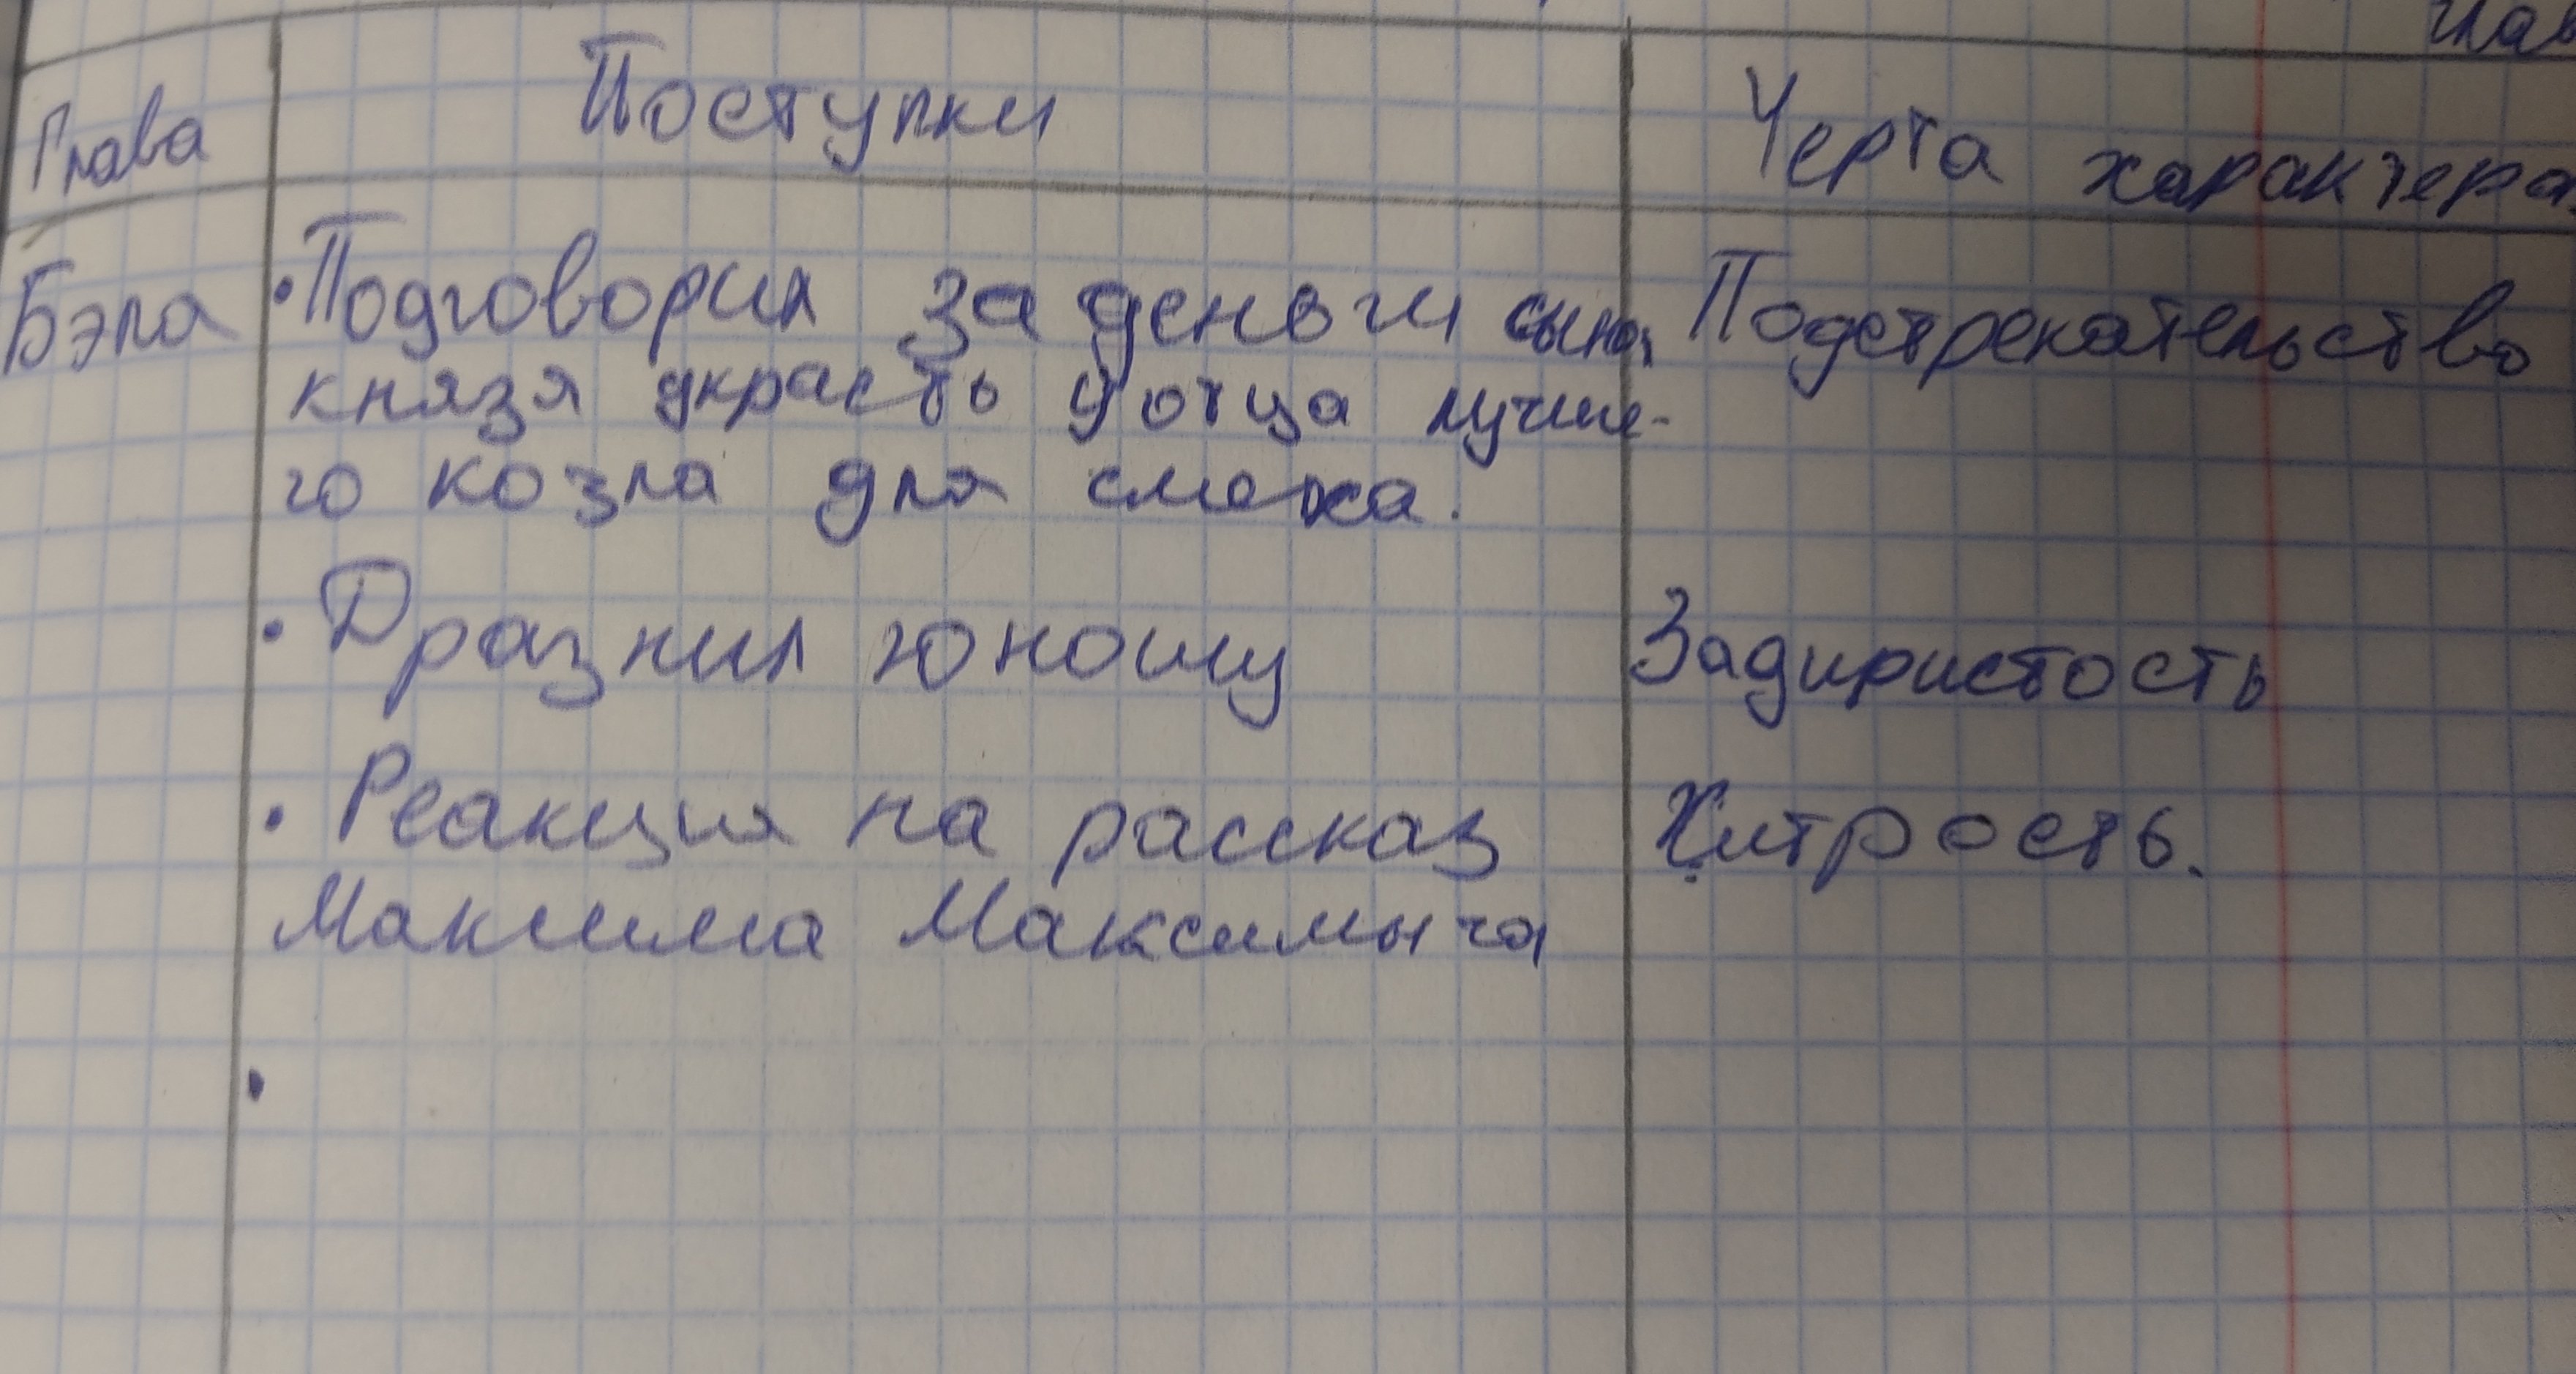 Глава Поступки Черта характера
Бэла • Подговорил за деньги сына Подстрекательство
князя украсть у отца лучше-
го козла для смеха.
• Дразнил юношу Задиристость
• Реакция на рассказ Хитрость.
Максима Максимыча
•